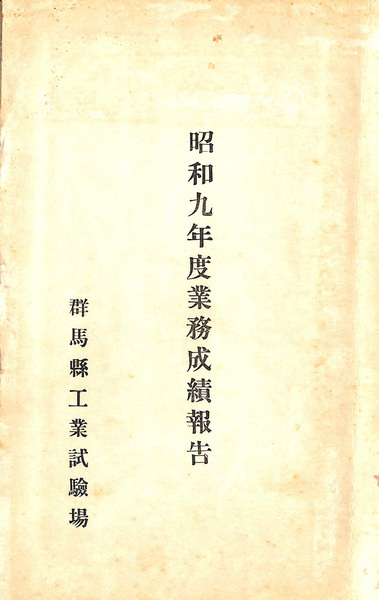 昭和九年度業務成績報告
群馬縣工業試驗場